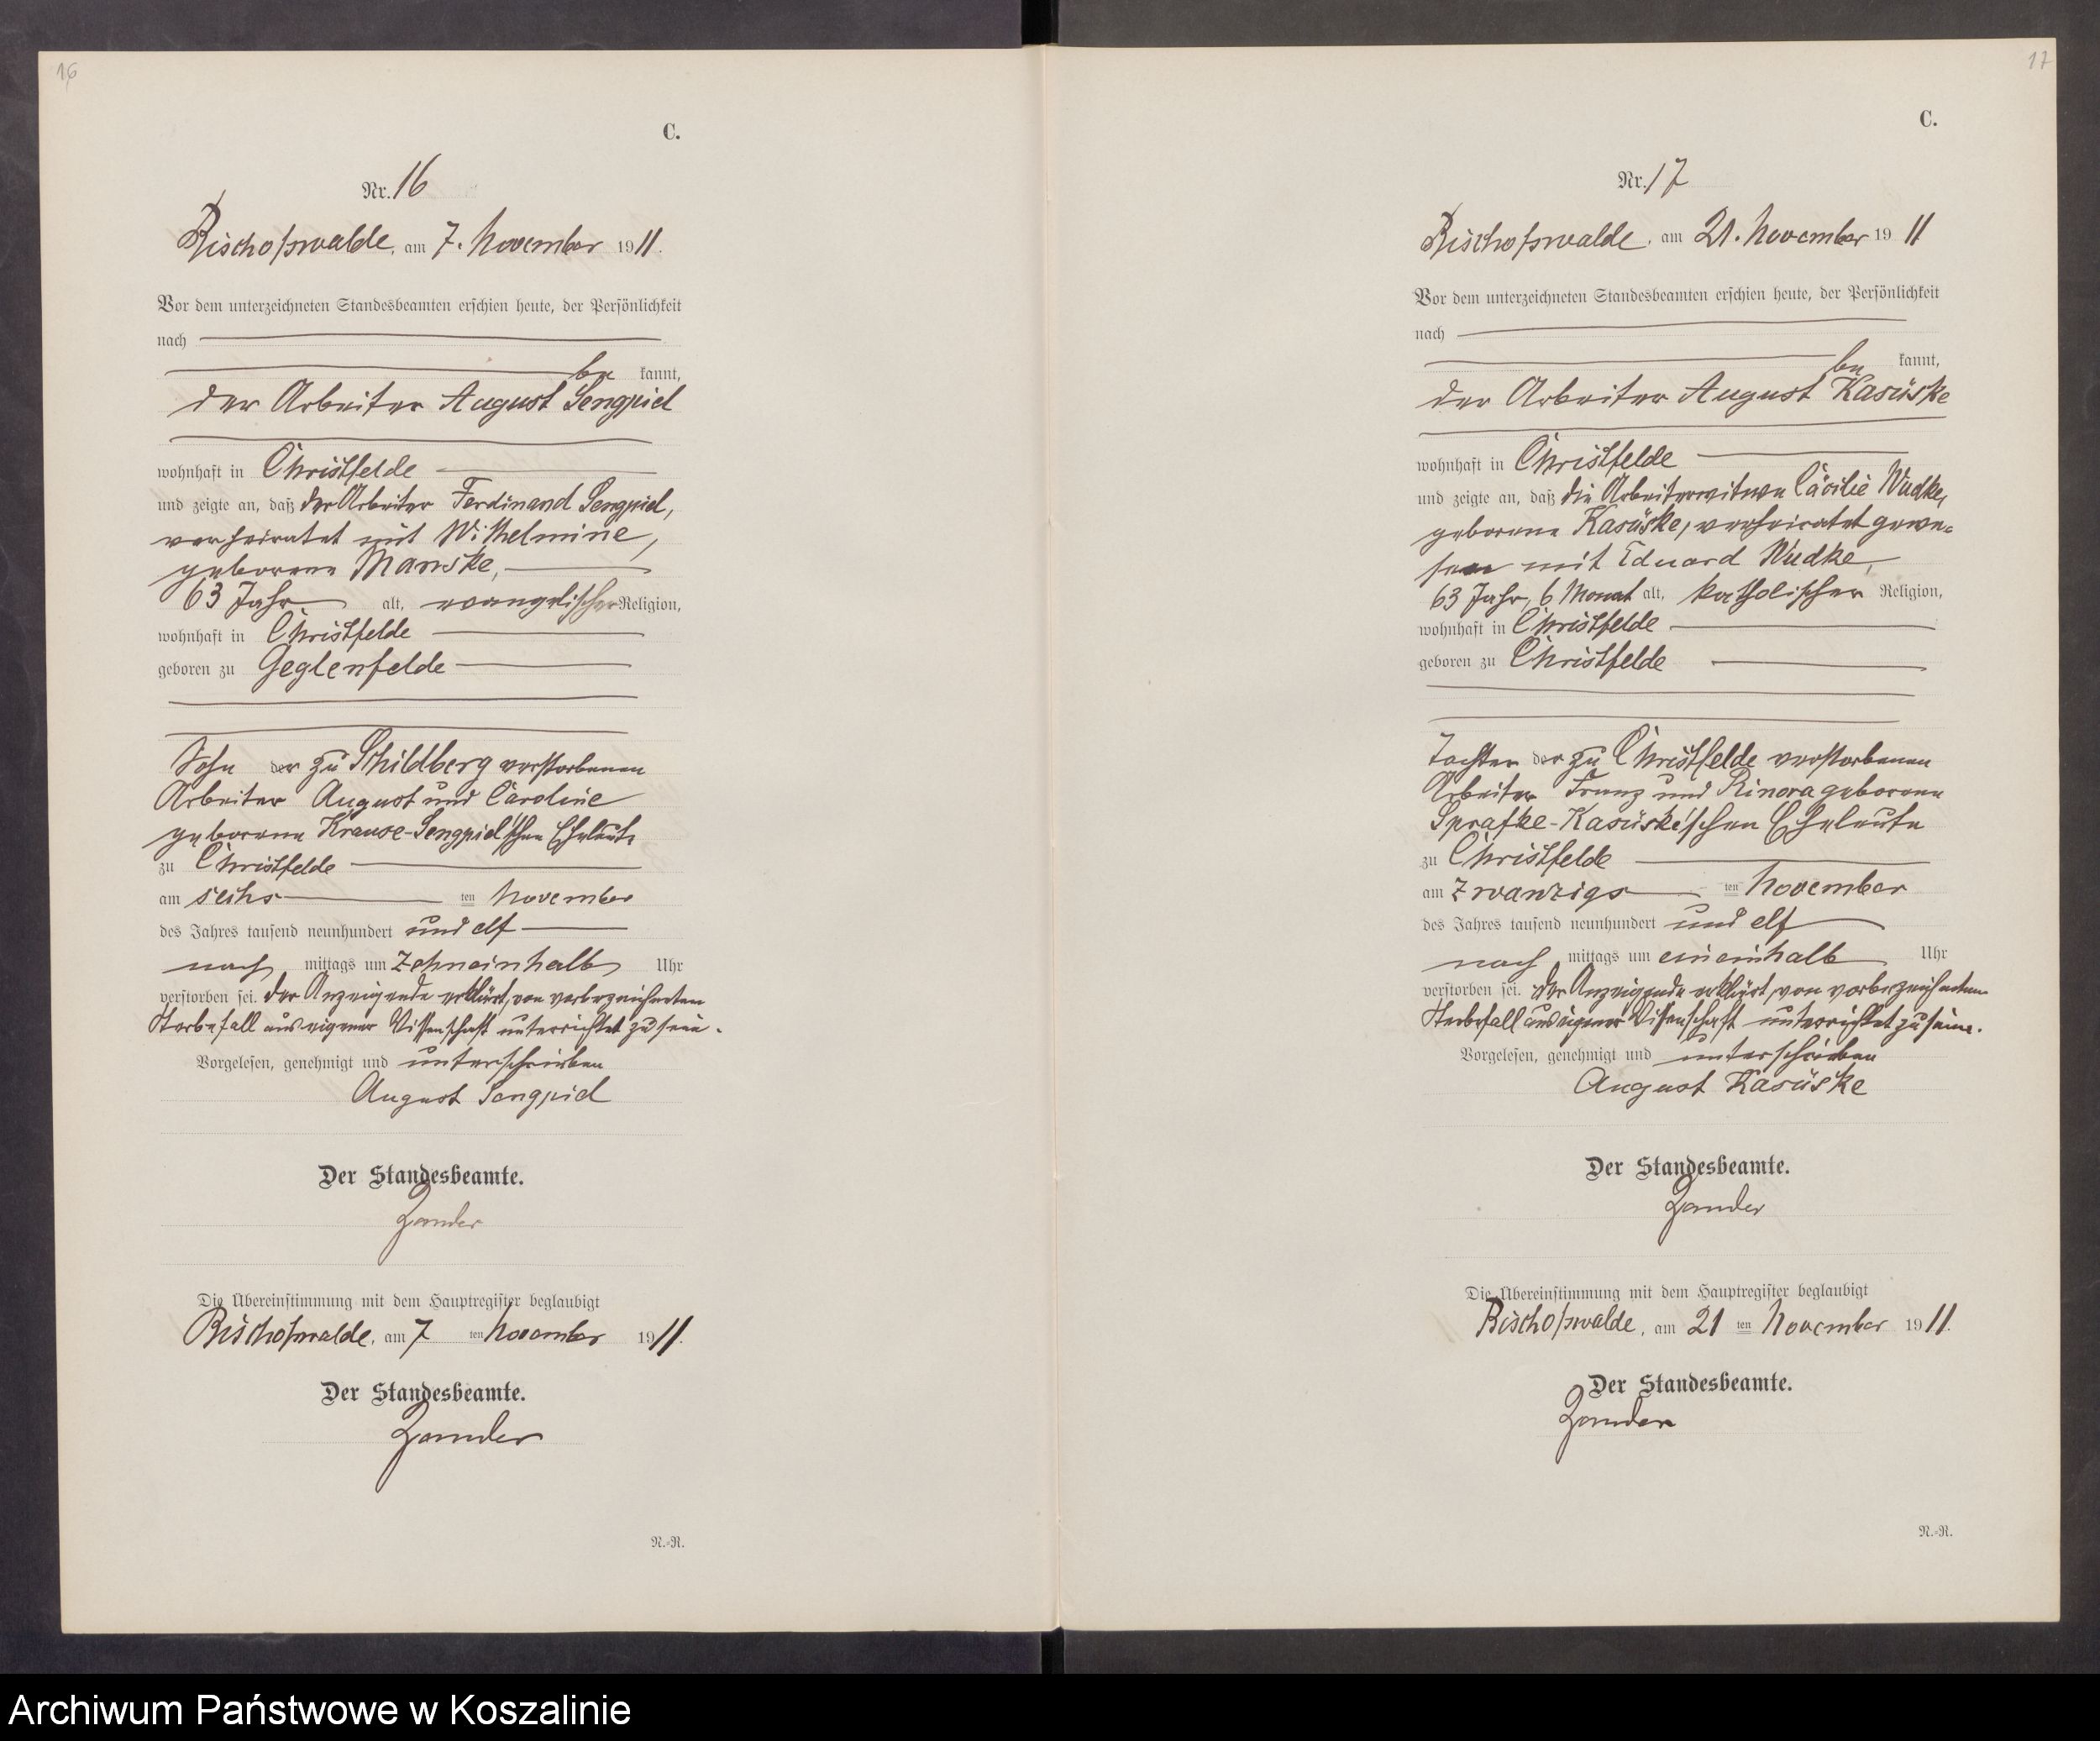 16
C.
Nr. 16
Bischofswalde, am 7. November 1911.
Vor dem unterzeichneten Standesbeamten erschien heute, der Persönlichkeit
nach
be kannt,
der Arbeiter August Sengpiel
wohnhaft in Christfelde
und zeigte an, daß der Arbeiter Ferdinand Sengpiel,
verheiratet mit Wilhelmine,
geborene Manske,
63 Jahr alt, evangelischer Religion,
wohnhaft in Christfelde
geboren zu Geglenfelde
Sohn der zu Schildberg verstorbenen
Arbeiter August und Caroline
geborene Krause-Sengpiel'schen Eheleute
zu Christfelde
am sechs ten November
des Jahres tausend neunhundert und elf
nach mittags um zehneinhalb Uhr
verstorben sei. Der Anzeigende erklärt, von vorbezeichneten
Sterbefall aus eigener Wissenschaft unterrichtet zu sein.
Vorgelesen, genehmigt und unterschrieben
August Sengpiel
Der Standesbeamte.
Zander
Die Übereinstimmung mit dem Hauptregister beglaubigt
Bischofswalde, am 7 ten November 1911.
Der Standesbeamte.
Zander
N.-R.
17
C.
Nr. 17
Bischofswalde, am 21. November 1911
Vor dem unterzeichneten Standesbeamten erschien heute, der Persönlichkeit
nach
be kannt,
der Arbeiter August Kasüske
wohnhaft in Christfelde
und zeigte an, daß die Arbeiterwitwe Cäcilie Wudke,
geborene Kasüske, verheiratet gewe-
sen mit Eduard Wudke,
63 Jahr, 6 Monat alt, katholischer Religion,
wohnhaft in Christfelde
geboren zu Christfelde
Tochter der zu Christfelde verstorbenen
Arbeiter Franz und Rinora geborene
Sprafke-Kasüske'schen Eheleute
zu Christfelde
am zwanzigs ten November
des Jahres tausend neunhundert und elf
nach mittags um eineinhalb Uhr
verstorben sei. Der Anzeigende erklärt, von vorbezeichneten
Sterbefall aus eigener Wissenschaft unterrichtet zu sein.
Vorgelesen, genehmigt und unterschrieben
August Kasüske
Der Standesbeamte.
Zander
Die Übereinstimmung mit dem Hauptregister beglaubigt
Bischofswalde, am 21 ten November 1911.
Der Standesbeamte.
Zander
N.-R.
Archiwum Państwowe w Koszalinie